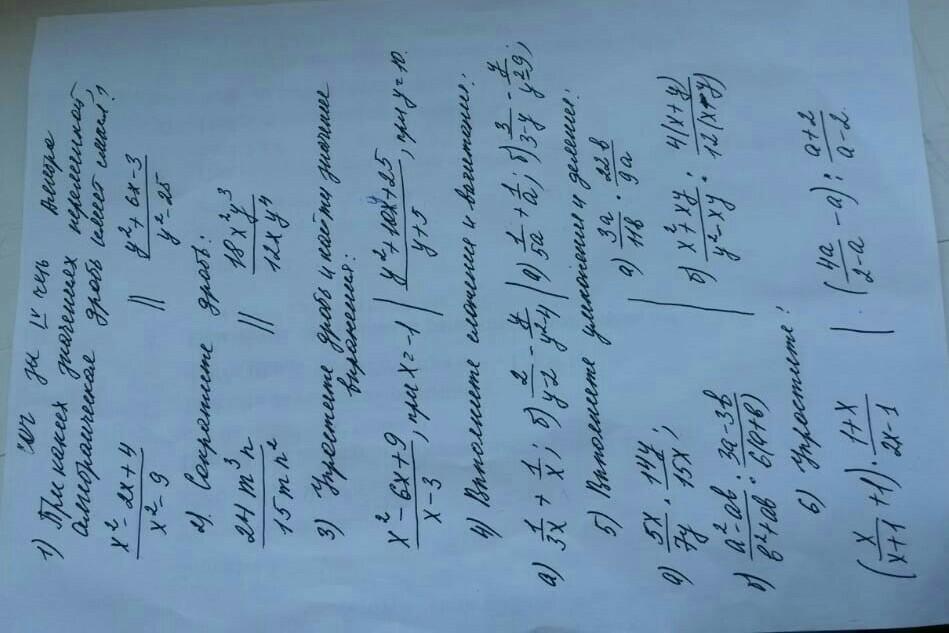 1) При каких значениях переменной
алгебраическая дробь имеет смысл?
(x²-2x+4)/(x²-9) || (y²+6x-3)/(y²-25)
2) Сократите дробь:
(24m³n)/(15mn²) || (18x²y³)/(12xy⁴)
3) Упростите дробь и найти значение
выражения:
(x²-6x+9)/(x-3), при x=-1 | (y²+10y+25)/(y+5), при y=10.
4) Выполните сложение и вычитание:
а) 1/(3x) + 1/x; б) 2/(y-2) - y/(y²-4) | а) 1/(5a) + 1/a; б) 3/(3-y) - y/(y²-9);
5) Выполните умножение и деление:
а) (5x)/(7y) · (14y)/(15x); | а) (3a)/(11b) · (22b)/(9a)
б) (a²-ab)/(b²+ab) : (3a-3b)/(6(a+b)) | б) (x²+xy)/(y²-xy) : (4(x+y))/(12(x-y))
6) Упростите:
(x/(x+1) + 1) · (1+x)/(2x-1) | (4a/(2-a) - a) : (a+2)/(a-2)